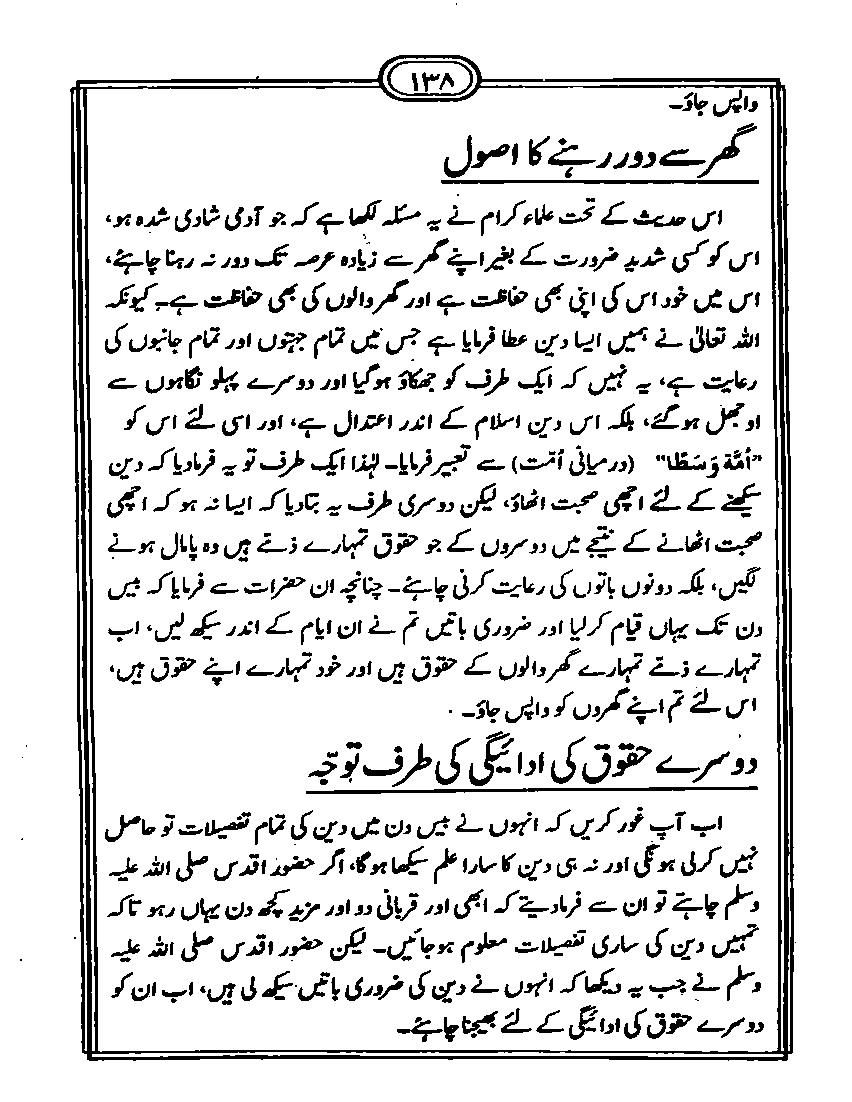 ۱۳۸
واپس جاؤ۔
گھر سے دور رہنے کا اصول
اس حدیث کے تحت علماء کرام نے یہ مسئلہ لکھا ہے کہ جو آدمی شادی شدہ ہو،
اس کو کسی شدید ضرورت کے بغیر اپنے گھر سے زیادہ عرصہ تک دور نہ رہنا چاہئے،
اس میں خود اس کی اپنی بھی حفاظت ہے اور گھر والوں کی بھی حفاظت ہے۔ کیونکہ
اللہ تعالیٰ نے ہمیں ایسا دین عطا فرمایا ہے جس میں تمام جہتوں اور تمام جانبوں کی
رعایت ہے، یہ نہیں کہ ایک طرف کو جھکاؤ ہوگیا اور دوسرے پہلو نگاہوں سے
اوجھل ہوگئے، بلکہ اس دین اسلام کے اندر اعتدال ہے، اور اسی لئے اس کو
"اُمَّةً وَسَطًا" (درمیانی اُمّت) سے تعبیر فرمایا۔ لہٰذا ایک طرف تو یہ فرمادیا کہ دین
سیکھنے کے لئے اچھی صحبت اٹھاؤ، لیکن دوسری طرف یہ بتادیا کہ ایسا نہ ہو کہ اچھی
صحبت اٹھانے کے نتیجے میں دوسروں کے جو حقوق تمہارے ذمّے ہیں وہ پامال ہونے
لگیں، بلکہ دونوں باتوں کی رعایت کرنی چاہئے۔ چنانچہ ان حضرات سے فرمایا کہ بیس
دن تک یہاں قیام کرلیا اور ضروری باتیں تم نے ان ایام کے اندر سیکھ لیں، اب
تمہارے ذمّے تمہارے گھر والوں کے حقوق ہیں اور خود تمہارے اپنے حقوق ہیں،
اس لئے تم اپنے گھروں کو واپس جاؤ۔
دوسرے حقوق کی ادائیگی کی طرف توجّہ
اب آپ غور کریں کہ انہوں نے بیس دن میں دین کی تمام تفصیلات تو حاصل
نہیں کرلی ہونگی اور نہ ہی دین کا سارا علم سیکھا ہوگا، اگر حضور اقدس صلی اللہ علیہ
وسلم چاہتے تو ان سے فرمادیتے کہ ابھی اور قربانی دو اور مزید کچھ دن یہاں رہو تاکہ
تمہیں دین کی ساری تفصیلات معلوم ہوجائیں۔ لیکن حضور اقدس صلی اللہ علیہ
وسلم نے جب یہ دیکھا کہ انہوں نے دین کی ضروری باتیں سیکھ لی ہیں، اب ان کو
دوسرے حقوق کی ادائیگی کے لئے بھیجنا چاہئے۔